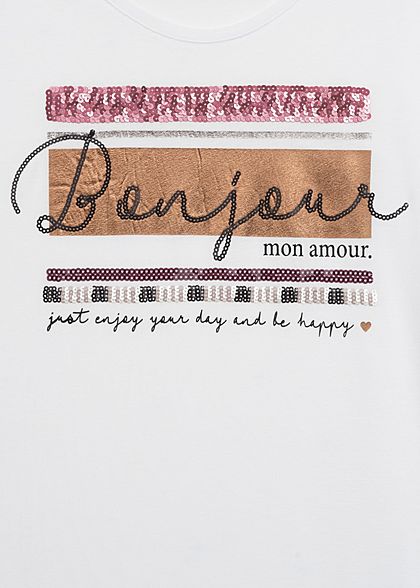 Bonjour
mon amour.
just enjoy your day and be happy